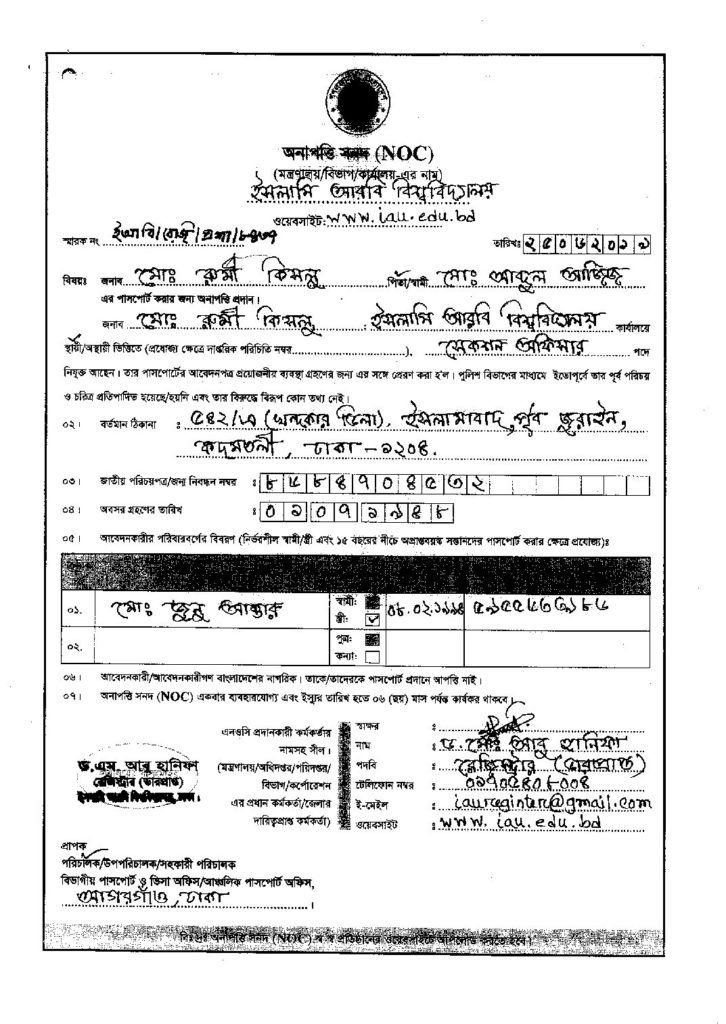 অনাপত্তি সনদ (NOC)
(মন্ত্রণালয়/বিভাগ/কার্যালয়-এর নাম)
ইসলামি আরবি বিশ্ববিদ্যালয়
ওয়েবসাইট: www.iau.edu.bd
স্মারক নং ইআবি/রেজি/প্রশা/ তারিখঃ
বিষয়ঃ জনাব মোঃ রুমী কিসলু পিতা/স্বামী মোঃ আব্দুল আজিজ
এর পাসপোর্ট করার জন্য অনাপত্তি প্রদান।
জনাব মোঃ রুমী কিসলু , ইসলামি আরবি বিশ্ববিদ্যালয় কার্যালয়ে
স্থায়ী/অস্থায়ী ভিত্তিতে (প্রযোজ্য ক্ষেত্রে দাপ্তরিক পরিচিতি নম্বর), সেকশন অফিসার পদে
নিযুক্ত আছেন। তার পাসপোর্টের আবেদনপত্র প্রয়োজনীয় ব্যবস্থা গ্রহণের জন্য এর সঙ্গে প্রেরণ করা হ'ল। পুলিশ বিভাগের মাধ্যমে ইতোপূর্বে তার পূর্ব পরিচয়
ও চরিত্র প্রতিপাদিত হয়েছে/হয়নি এবং তার বিরুদ্ধে বিরূপ কোন তথ্য নেই।
০২। বর্তমান ঠিকানা : ৫৪২/এ (খন্দকার ভিলা), ইসলামাবাদ, পূর্ব জুরাইন,
কদমতলী, ঢাকা -১২০৪.
০৩। জাতীয় পরিচয়পত্র/জন্ম নিবন্ধন নম্বর :
০৪। অবসর গ্রহণের তারিখ :
০৫। আবেদনকারীর পরিবারবর্গের বিবরণ (নির্ভরশীল স্বামী/স্ত্রী এবং ১৫ বছরের নীচে অপ্রাপ্তবয়স্ক সন্তানদের পাসপোর্ট করার ক্ষেত্রে প্রযোজ্য)ঃ
০১. মোঃ জুনু আক্তার স্বামী:
স্ত্রী:
০২. পুত্র:
কন্যা:
০৬। আবেদনকারী/আবেদনকারীগণ বাংলাদেশের নাগরিক। তাকে/তাদেরকে পাসপোর্ট প্রদানে আপত্তি নাই।
০৭। অনাপত্তি সনদ (NOC) একবার ব্যবহারযোগ্য এবং ইস্যুর তারিখ হতে ০৬ (ছয়) মাস পর্যন্ত কার্যকর থাকবে।
এনওসি প্রদানকারী কর্মকর্তার স্বাক্ষর :
নামসহ সীল। নাম : ড. মোঃ আবু হানিফা
(মন্ত্রণালয়/অধিদপ্তর/পরিদপ্তর/ পদবি : রেজিস্ট্রার (ভারপ্রাপ্ত)
বিভাগ/কর্পোরেশন টেলিফোন নম্বর :
এর প্রধান কর্মকর্তা/জেলার ই-মেইল : iauregister@gmail.com
দায়িত্বপ্রাপ্ত কর্মকর্তা) ওয়েবসাইট : www.iau.edu.bd
ড.এম. আবু হানিফা
রেজিস্ট্রার (ভারপ্রাপ্ত)
প্রাপক
পরিচালক/উপপরিচালক/সহকারী পরিচালক
বিভাগীয় পাসপোর্ট ও ভিসা অফিস/আঞ্চলিক পাসপোর্ট অফিস,
আগারগাঁও, ঢাকা।
বিঃদ্রঃ অনাপত্তি সনদ (NOC) স্ব স্ব প্রতিষ্ঠানের ওয়েবসাইটে আপলোড করতে হবে।